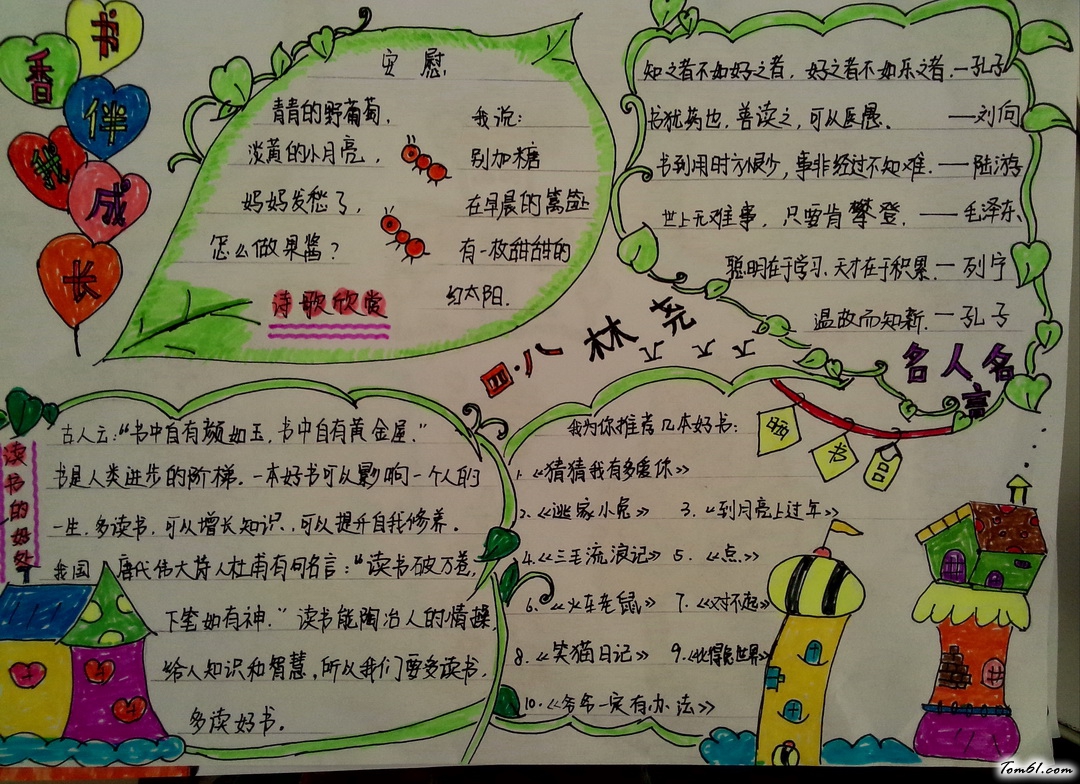 书香伴我成长
安慰
青青的野葡萄，
淡黄的小月亮，
妈妈发愁了，
怎么做果酱？
我说：
别加糖
在早晨的篱笆上
有一枚甜甜的
红太阳.
诗歌欣赏
知之者不如好之者，好之者不如乐之者.—孔子
书犹药也，善读之，可以医愚。 —刘向
书到用时方恨少，事非经过不知难.——陆游
世上无难事，只要肯攀登.——毛泽东、
聪明在于学习、天才在于积累.—列宁
温故而知新.—孔子
名人名言
四·八 林尧
读书的好处
古人云：“书中自有颜如玉，书中自有黄金屋.”
书是人类进步的阶梯。一本好书可以影响一个人的
一生.多读书，可以增长知识.可以提升自我修养。
我国唐代伟大诗人杜甫有句名言：“读书破万卷，
下笔如有神.”读书能陶冶人的情操，
给人知识和智慧，所以我们要多读书，
多读好书。
晒书吕
我为你推荐几本好书：
1.《猜猜我有多爱你》
2.《逃家小兔》 3.《到月亮上过年》
4.《三毛流浪记》 5.《点.》
6.《火车老鼠》 7.《对不起》
8.《笑猫日记》 9.《比得兔世界》
10.《爷爷一定有办法》
Tom61.com